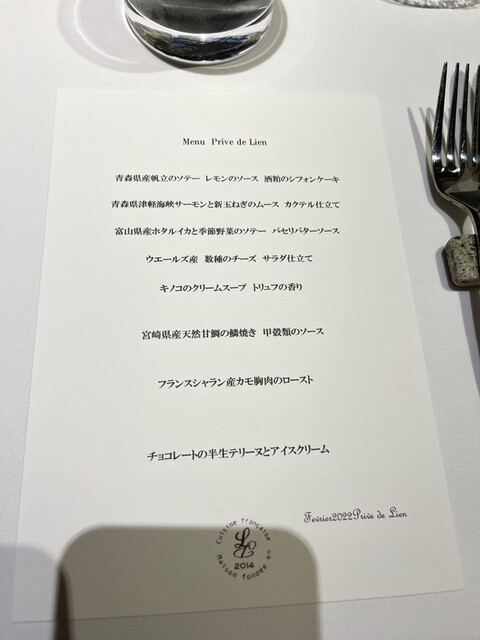 Menu Prive de Lien
青森県産帆立のソテー レモンのソース 酒粕のシフォンケーキ
青森県津軽海峡サーモンと新玉ねぎのムース カクテル仕立て
富山県産ホタルイカと季節野菜のソテー パセリバターソース
ウエールズ産 数種のチーズ サラダ仕立て
キノコのクリームスープ トリュフの香り
宮崎県産天然甘鯛の鱗焼き 甲殻類のソース
フランスシャラン産カモ胸肉のロースト
チョコレートの半生テリーヌとアイスクリーム
Fevrier2022Prive de Lien
Cuisine française
2014
Maison fondée en